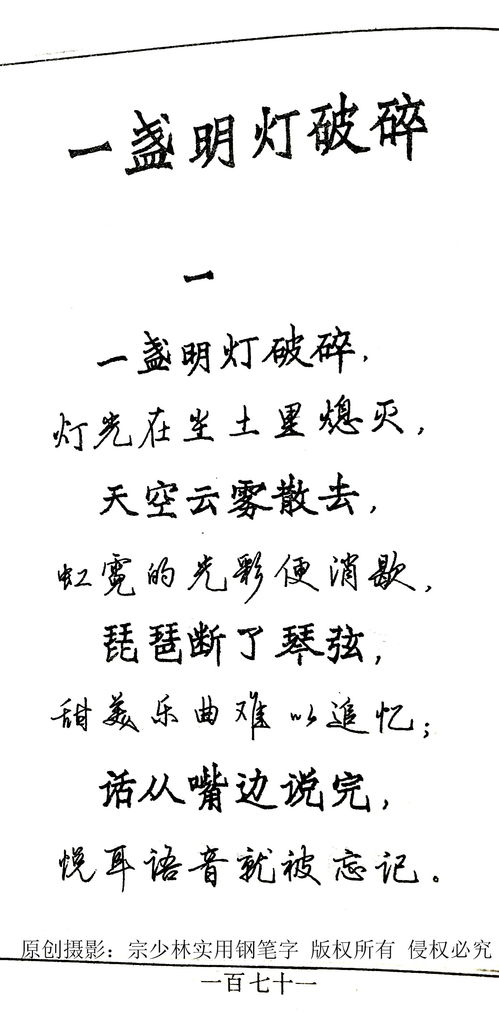 一盏明灯破碎
一
一盏明灯破碎，
灯光在尘土里熄灭，
天空云雾散去，
虹霓的光彩便消歇，
琵琶断了琴弦，
甜美乐曲难以追忆；
话从嘴边说完，
悦耳语音就被忘记。
原创摄影：宗少林实用钢笔字 版权所有 侵权必究
一百七十一